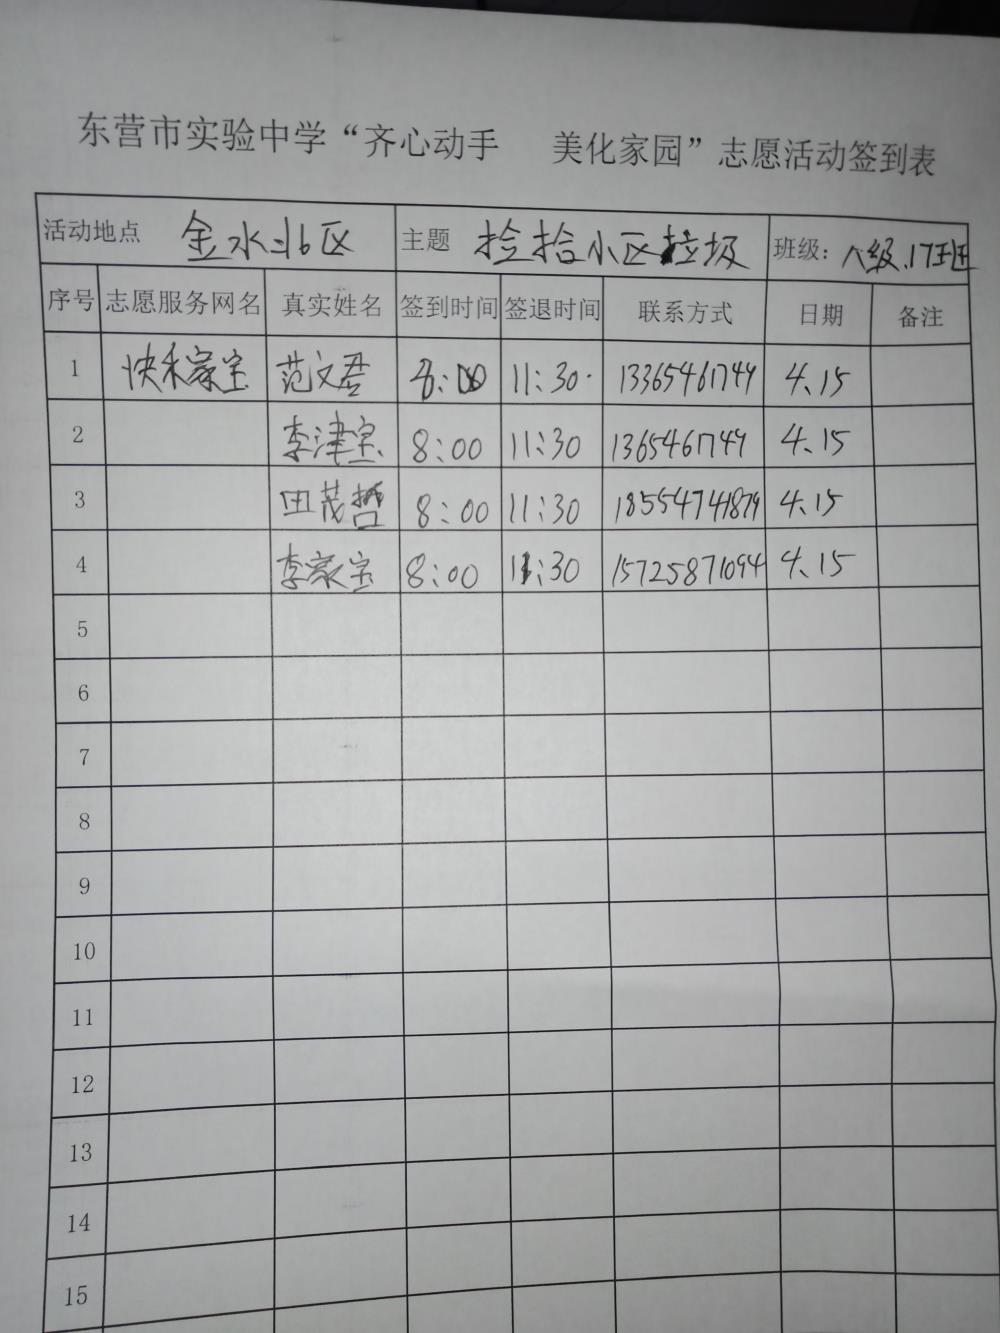 东营市实验中学“齐心动手 美化家园”志愿活动签到表
活动地点 金水北区 主题 捡拾小区垃圾 班级：八级.17班
序号 志愿服务网名 真实姓名 签到时间 签退时间 联系方式 日期 备注
1 快禾家宝 范文君 8:00 11:30. 13365461749 4.15
2 李津宝 8:00 11:30 1365461749 4.15
3 田茂哲 8:00 11:30 18554741879 4.15
4 李家宝 8:00 11:30 15725871094 4.15
5
6
7
8
9
10
11
12
13
14
15